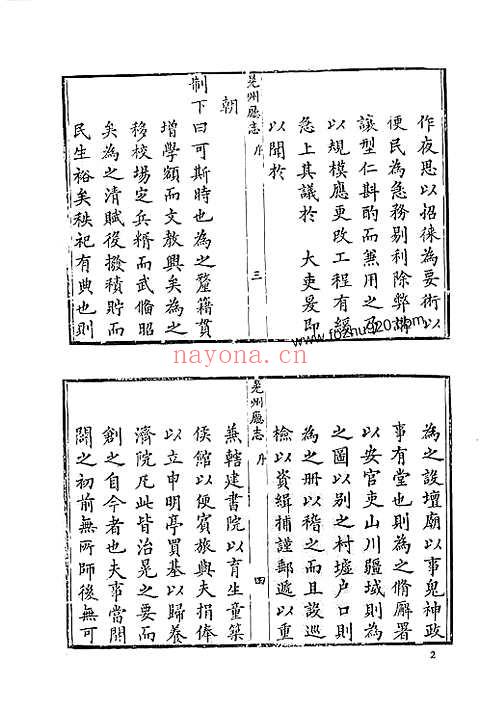 作夜思以招徠為要術以
便民為急務剔利除弊
讓型仁斟酌而無用之乃
以規模應更改工程有緩
急上其議於　大吏爰即
以聞於
晃州廳志　序　三
朝
制下曰可斯時也為之釐籍貫
增學額而文教興矣為之
移校場定兵糈而武備昭
矣為之清賦役撥積貯而
民生裕矣秩祀有典也則
www.fozhu920.com
nayona.cn
為之設壇廟以事鬼神政
事有堂也則為之脩廨署
以安官吏山川疆域則為
之圖以別之村墟戶口則
為之冊以稽之而且設巡
檢以資緝捕謹郵遞以重
晃州廳志　序　四
蕪轄建書院以育生童築
侯館以便賓旅與夫捐俸
以立申明亭買基以歸養
濟院凡此皆治晃之要而
創之自今者也夫事當開
闢之初前無所師後無可
2